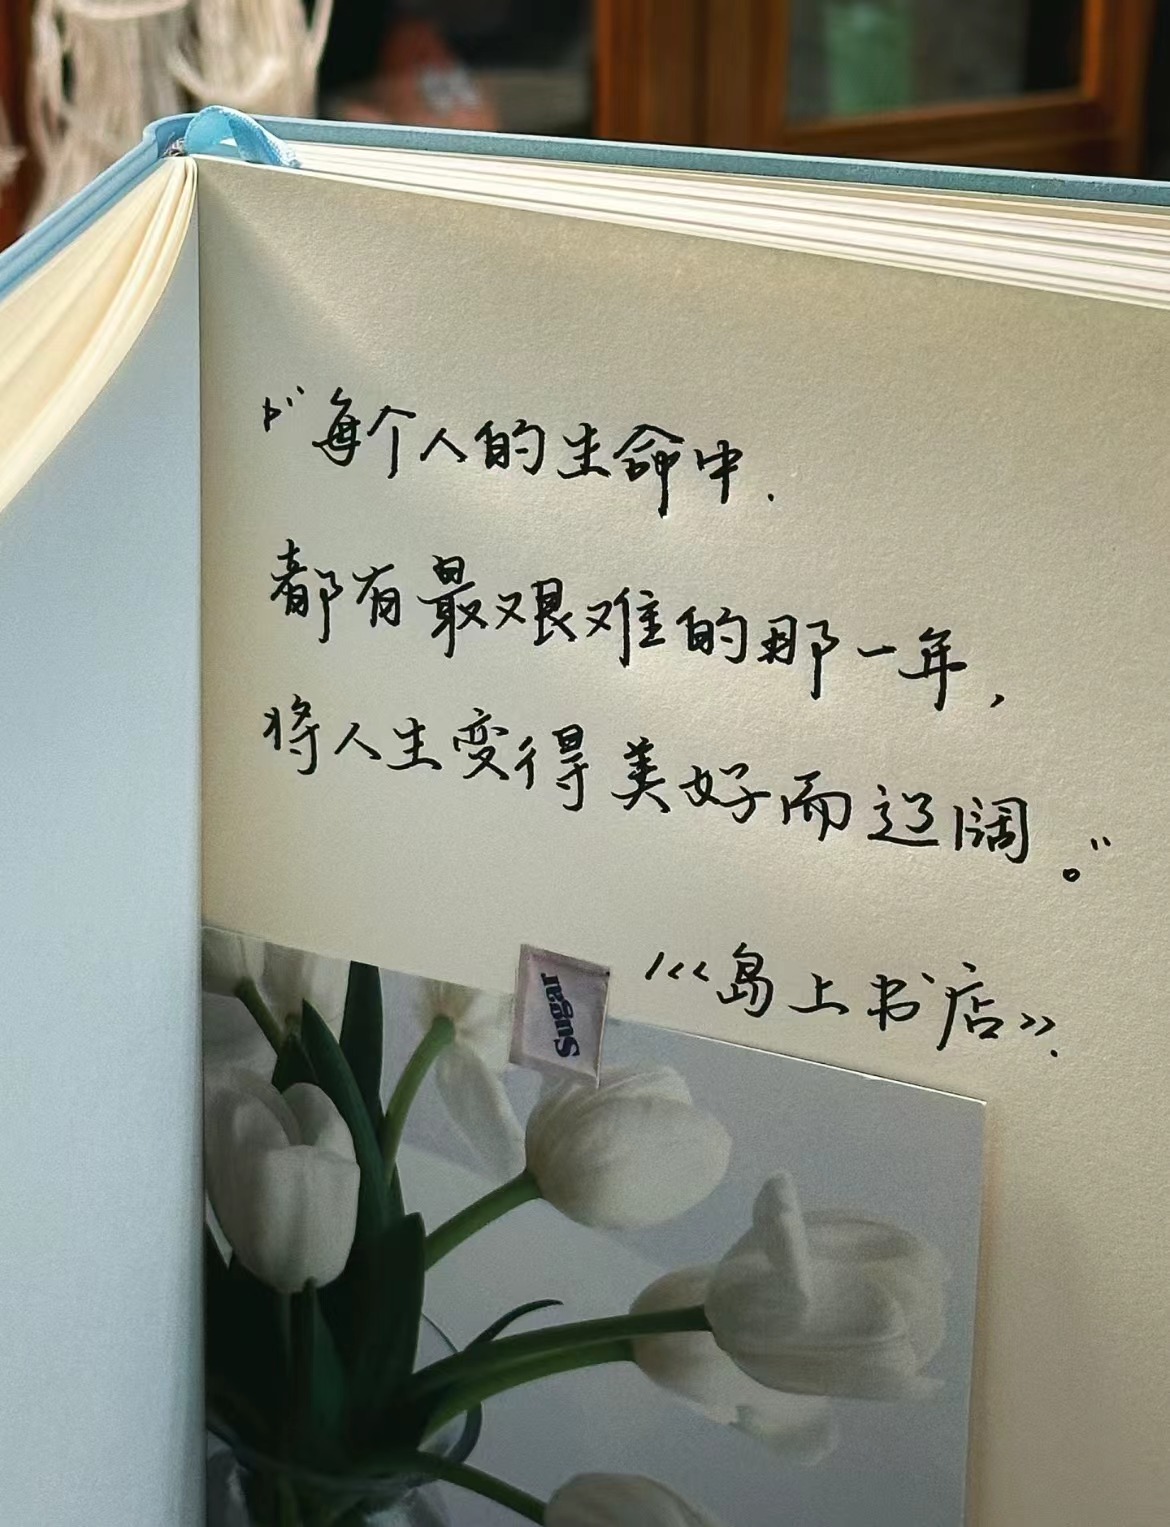 “每个人的生命中.
都有最艰难的那一年,
将人生变得美好而辽阔。”
《岛上书店》.
Sugar